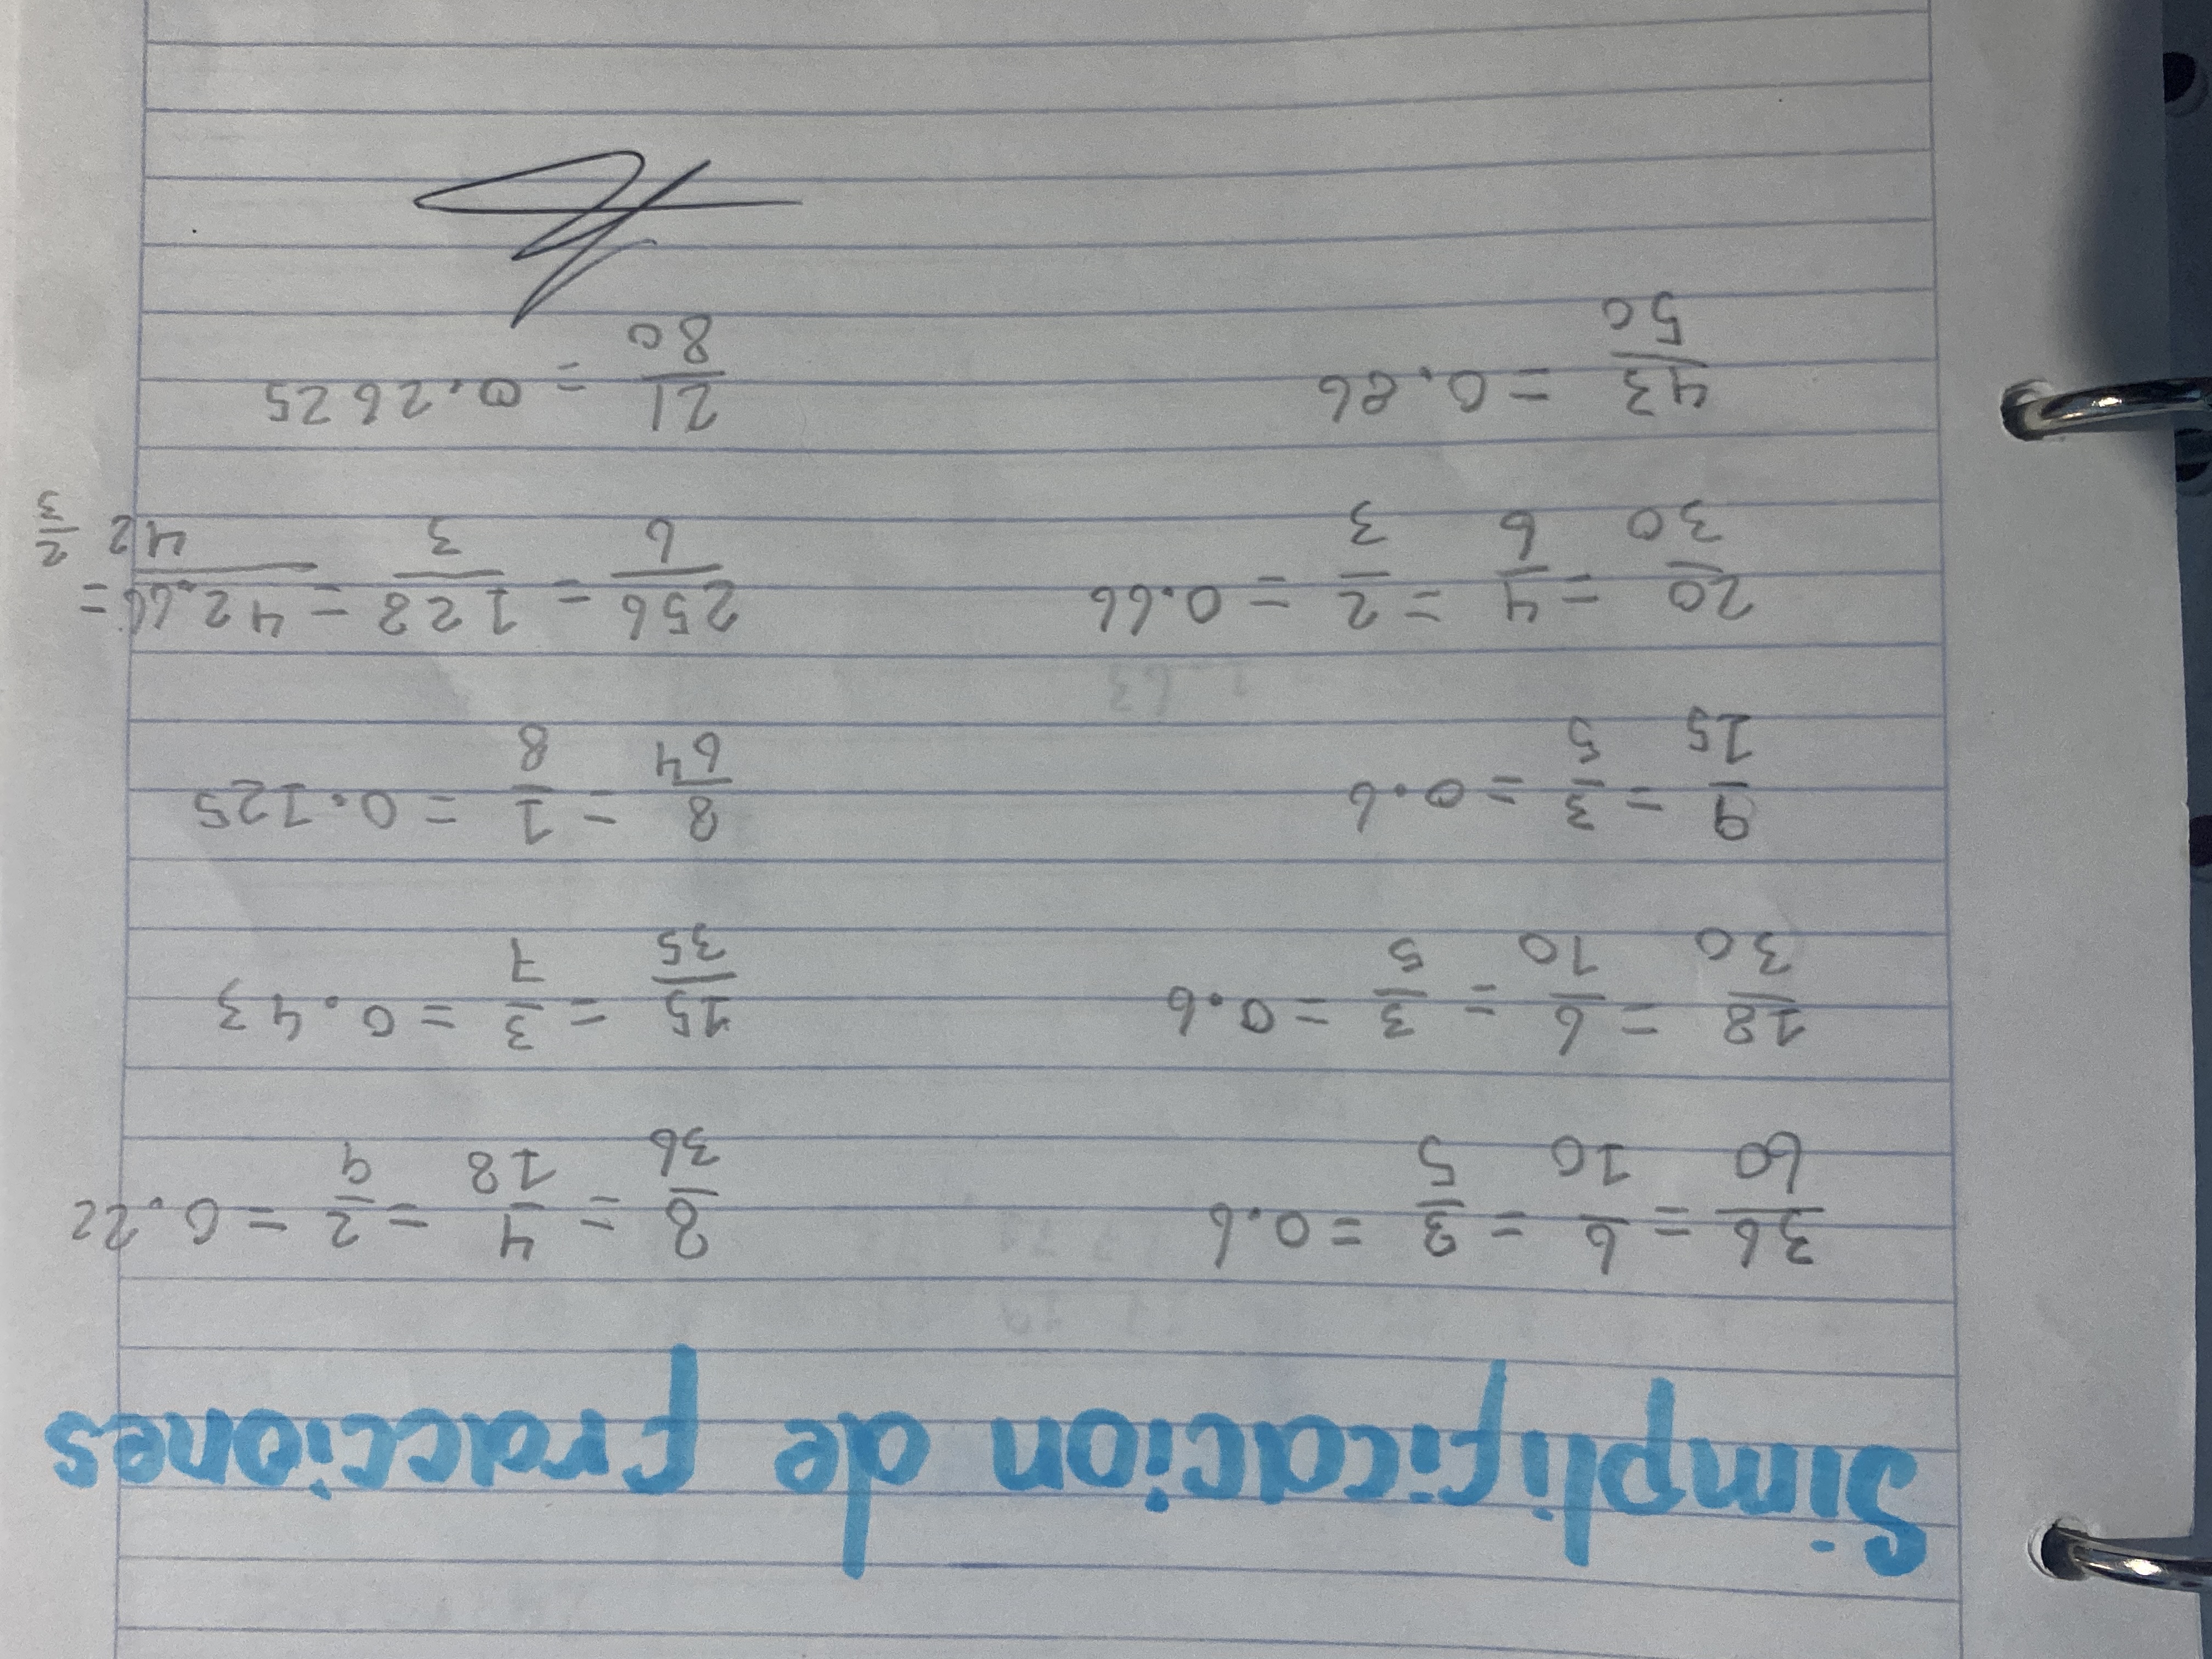 Simplificacion de fracciones
36/60 = 6/10 = 3/5 = 0.6
8/36 = 4/18 = 2/9 = 0.22
18/30 = 6/10 = 3/5 = 0.6
15/35 = 3/7 = 0.43
9/15 = 3/5 = 0.6
8/64 = 1/8 = 0.125
20/30 = 4/6 = 2/3 = 0.66
256/6 = 128/3 = 42.66 = 42 2/3
43/50 = 0.86
21/80 = 0.2625